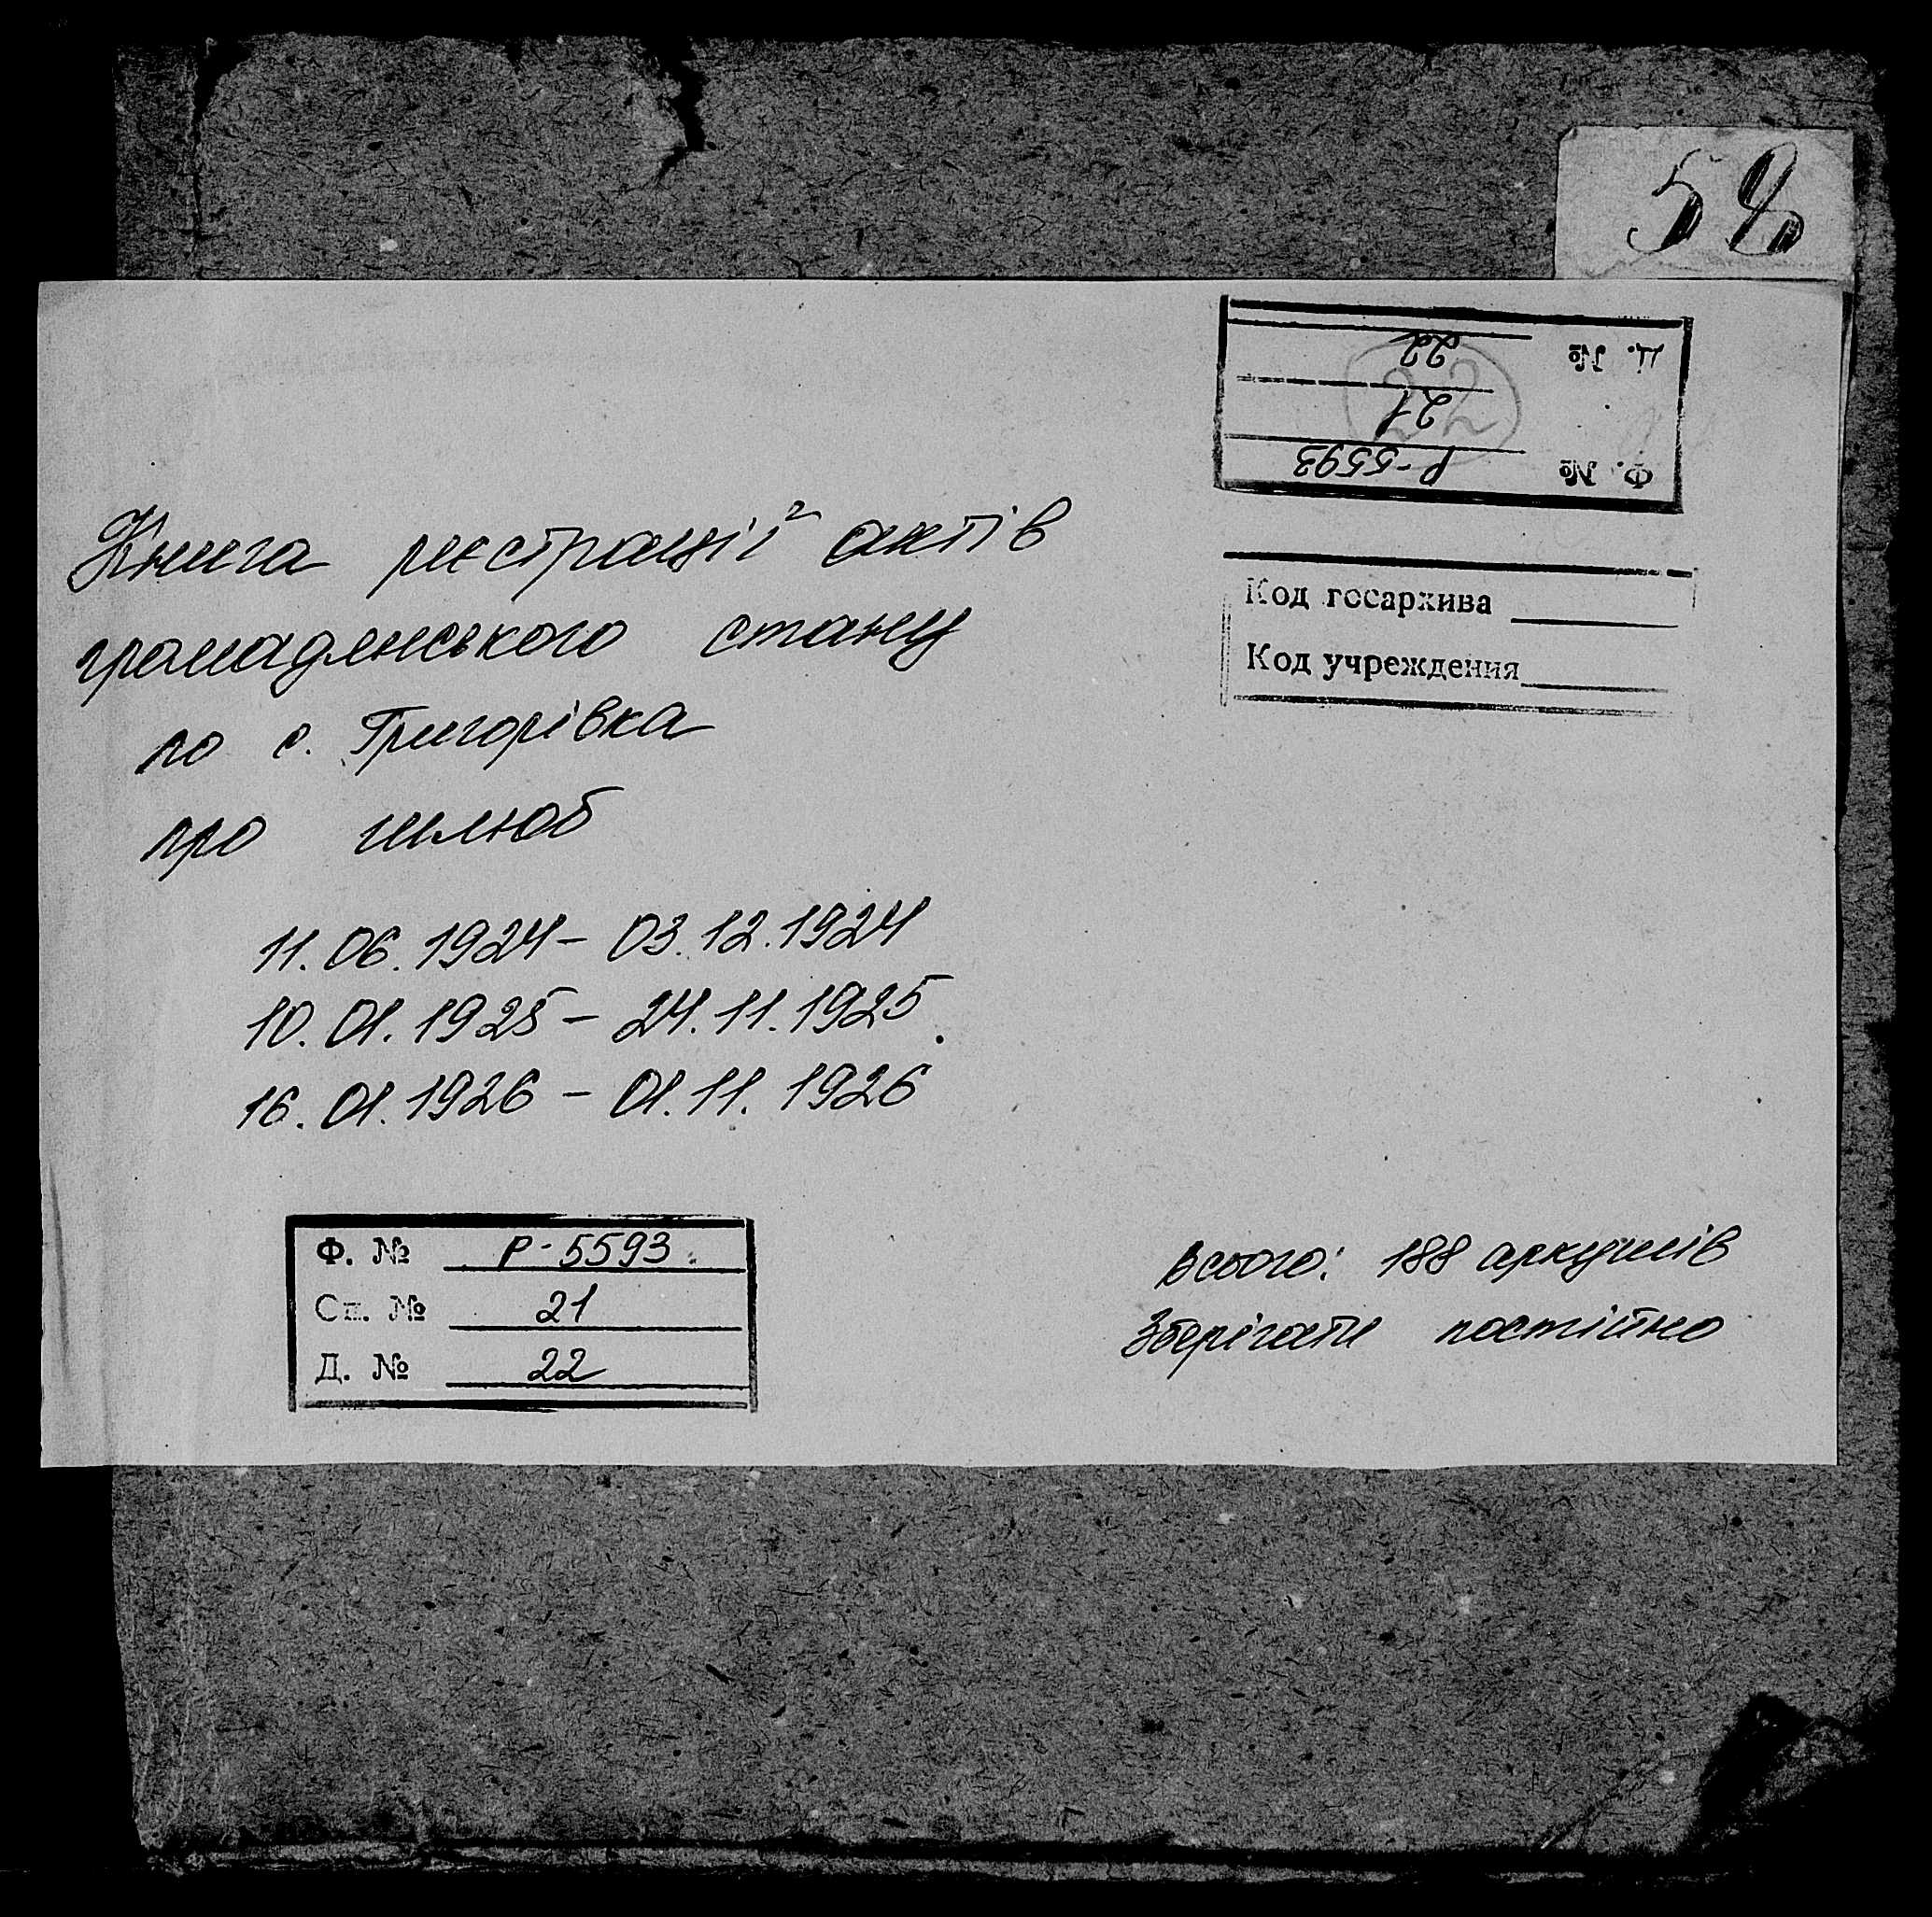 58
Ф. № Р-5593
21
Д. № 22
22
Код госархива
Код учреждения
Книга реєстрації актів
громадянського стану
по с. Григорівка
про шлюб
11.06.1924 – 03.12.1924
10.01.1925 – 24.11.1925.
16.01.1926 – 01.11.1926
Ф. № Р-5593
Оп. № 21
Д. № 22
Всього: 188 аркушів
Зберігати постійно